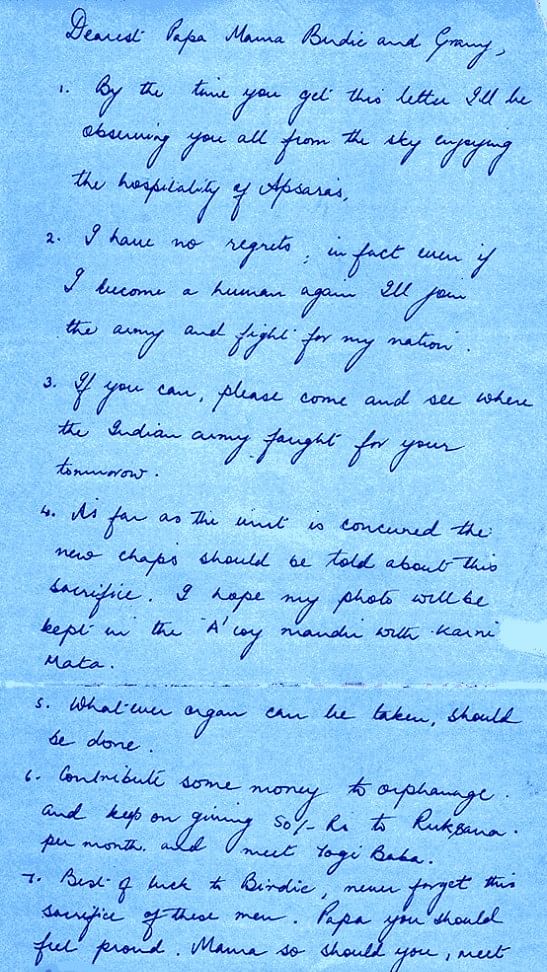 Dearest Papa Mama Birdie and Granny,
1. By the time you get this letter I'll be
observing you all from the sky enjoying
the hospitality of Apsaras,
2. I have no regrets, in fact even if
I become a human again I'll join
the army and fight for my nation.
3. If you can, please come and see where
the Indian army fought for your
tomorrow.
4. As far as the unit is concured the
new chaps should be told about this
sacrifice. I hope my photo will be
kept in the 'A' coy mandir with Karni
Mata.
5. Whatever organ can be taken, should
be done.
6. Contribute some money to orphanage.
and keep on giving 50/- Rs to Ruksana.
per month. and meet Yogi Baba.
7. Best of luck to Birdie, never forget this
sacrifice of these men. Papa you should
feel proud. Mama so should you, meet